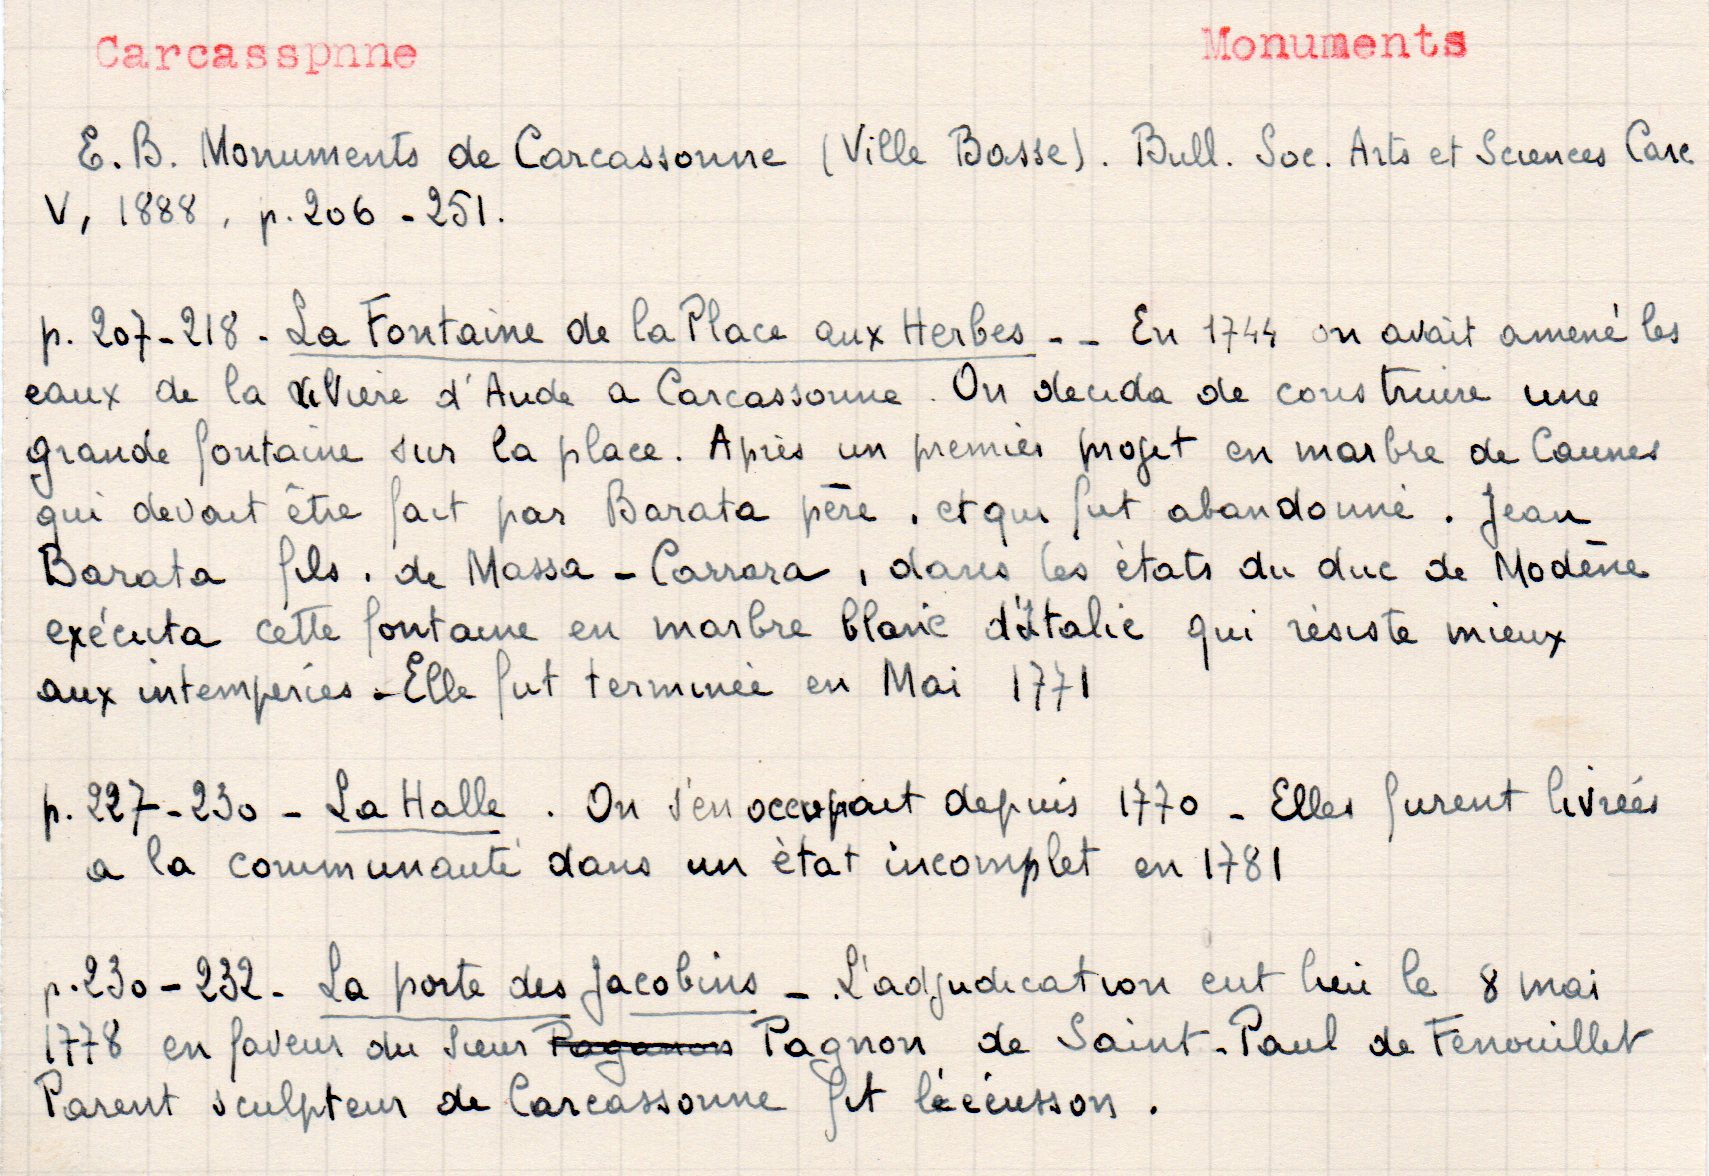 Carcasspnne Monuments
E. B. Monuments de Carcassonne (Ville Basse). Bull. Soc. Arts et Sciences Carc
V, 1888, p. 206 - 251.
p. 207-218 - La Fontaine de la Place aux Herbes - - En 1744 on avait amené les
eaux de la rivière d'Aude a Carcassonne. On decida de construire une
grande fontaine sur la place. Après un premier projet en marbre de Caunes
qui devait être fait par Barata père, et qui fut abandonné. Jean
Barata fils, de Massa - Carrara, dans les états du duc de Modène
exécuta cette fontaine en marbre blanc d'Italie qui résiste mieux
aux intempéries - Elle fut terminée en Mai 1771
p. 227-230 - La Halle. On s'en occupait depuis 1770 - Elles furent livrées
a la communauté dans un état incomplet en 1781
p. 230-232 - La porte des Jacobins - L'adjudication eut lieu le 8 mai
1778 en faveur du sieur Pagnon de Saint-Paul de Fenouillet
Parent sculpteur de Carcassonne fit l'écusson.